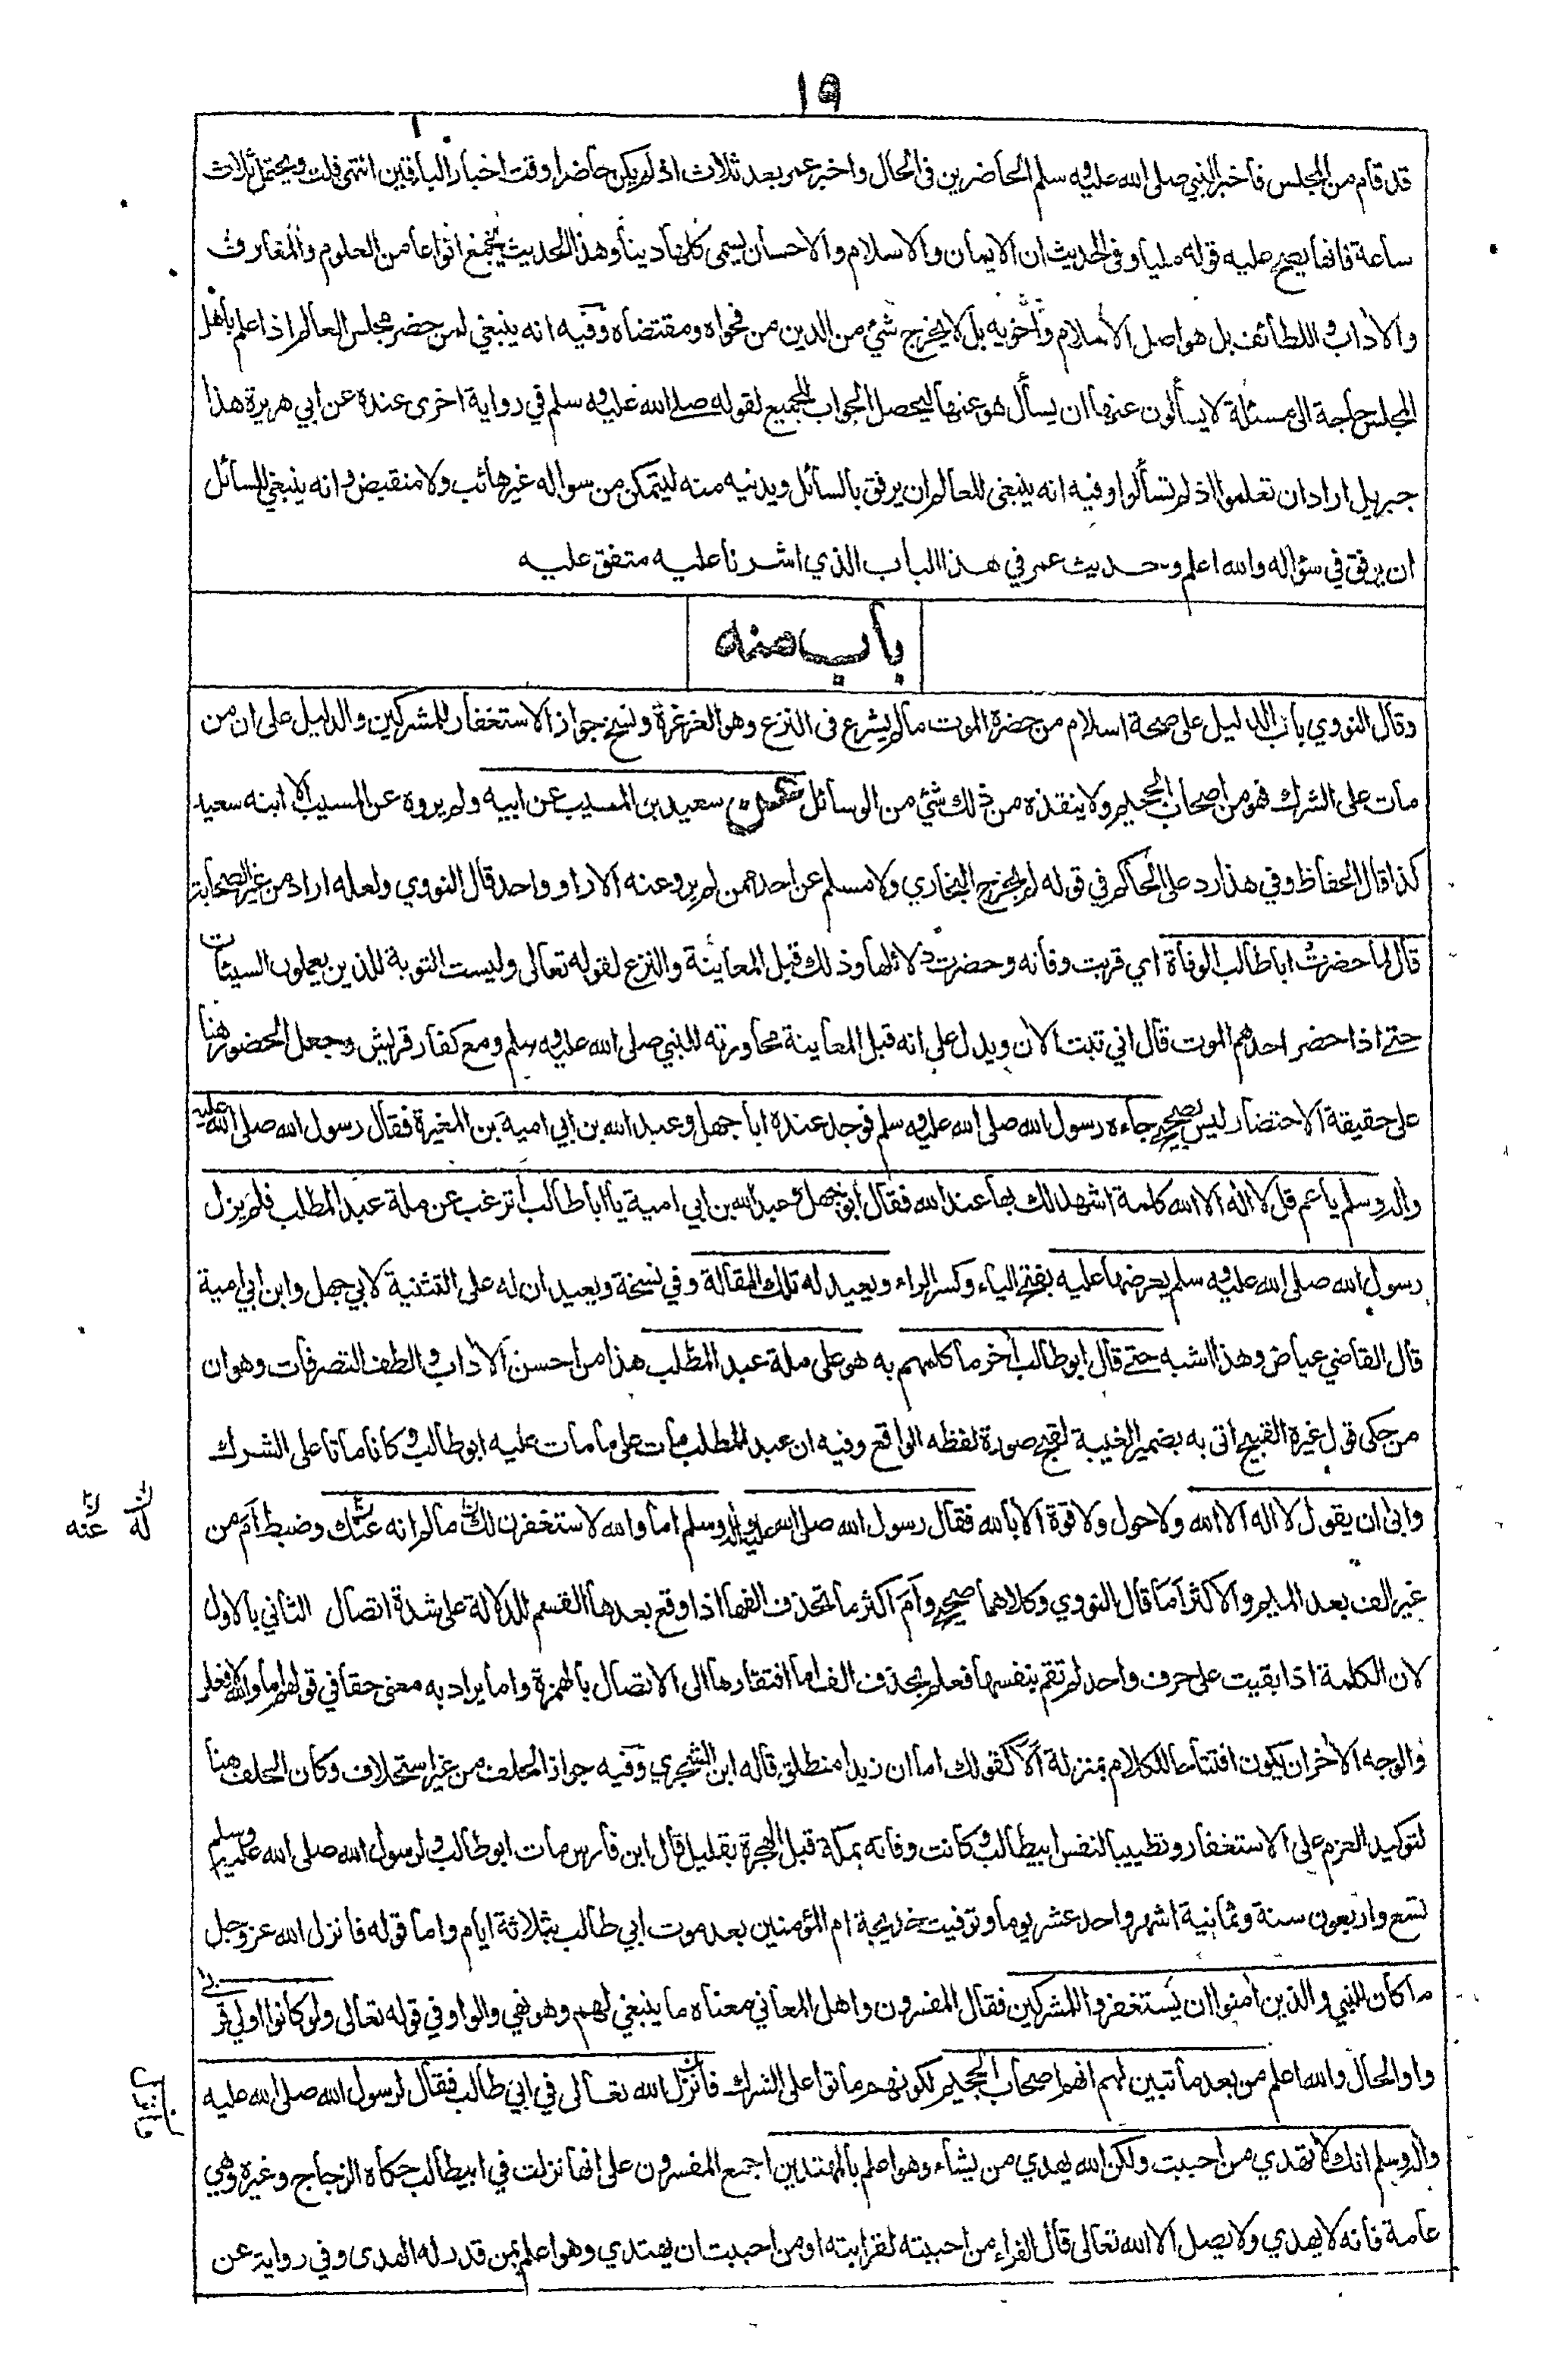 ١٩
قد قام من المجلس فأخبر النبي صلى الله عليه وسلم الحاضرين في الحال واخبر عمر بعد ثلاث اذ لم يكن حاضرا وقت اخبار الباقين انتهى قلت ويحتمل ثلاث
ساعة فانها يصح عليه قوله مليا وفي الحديث ان الايمان والاسلام والاحسان يسمى كلها دينا وهذا الحديث يجمع انواعا من العلوم والمعارف
والآداب واللطائف بل هو اصل الاسلام وأخويه بل لا يخرج شيء من الدين من فحواه ومقتضاه وفيه انه ينبغي لمن حضر مجلس العالم اذا علم بأهل
المجلس حاجة الى مسئلة لا يسألون عنها ان يسأل هو عنها ليحصل الجواب للجميع لقوله صلى الله عليه وسلم في رواية اخرى عنده عن ابي هريرة هذا
جبريل اراد ان تعلموا اذ لم تسألوا وفيه انه ينبغي للعالم ان يرفق بالسائل ويدنيه منه ليتمكن من سواله غير هائب ولا منقبض وانه ينبغي للسائل
ان يرفق في سؤاله والله اعلم وحديث عمر في هذا الباب الذي اشرنا عليه متفق عليه
باب منه
وقال النووي باب الدليل على صحة اسلام من حضره الموت ما لم يشرع في النزع وهو الغرغرة ونسخ جواز الاستغفار للمشركين والدليل على ان من
مات على الشرك فهو من اصحاب الجحيم ولا ينقذه من ذلك شئ من الوسائل عن سعيد بن المسيب عن ابيه ولم يروه عن المسيب الا ابنه سعيد
كذا قال الحفاظ وفي هذا رد على الحاكم في قوله لم يخرج البخاري ولا مسلم عن احد ممن لم يرو عنه الا راو واحد قال النووي ولعله اراد من غير الصحابة
قال لما حضرت ابا طالب الوفاة اي قربت وفاته وحضرت دلائلها وذلك قبل المعاينة والنزع لقوله تعالى وليست التوبة للذين يعملون السيئات
حتى اذا حضر احدهم الموت قال اني تبت الآن ويدل على انه قبل المعاينة محاورته للنبي صلى الله عليه وسلم ومع كفار قريش وجعل الحضور هنا
على حقيقة الاحتضار ليس بصحيح جاءه رسول الله صلى الله عليه وسلم فوجد عنده ابا جهل وعبد الله بن ابي امية بن المغيرة فقال رسول الله صلى الله عليه
وآله وسلم يا عم قل لا اله الا الله كلمة اشهد لك بها عند الله فقال ابو جهل وعبد الله بن ابي امية يا ابا طالب أترغب عن ملة عبد المطلب فلم يزل
رسول الله صلى الله عليه وسلم يعرضها عليه بفتح الياء وكسر الراء ويعيد له تلك المقالة وفي نسخة ويعيدان له على التثنية لابي جهل وابن ابي امية
قال القاضي عياض وهذا اشبه حتى قال ابو طالب آخر ما كلمهم به هو على ملة عبد المطلب هذا من احسن الآداب والطف التصرفات وهو ان
من حكى قول غيره القبيح اتى به بضمير الغيبة لقبح صورة لفظه الواقع وفيه ان عبد المطلب مات على ما مات عليه ابو طالب وكانا ماتا على الشرك
وابى ان يقول لا اله الا الله ولا حول ولا قوة الا بالله فقال رسول الله صلى الله عليه وآله وسلم اما والله لاستغفرن لك ما لم انه عنك وضبط أم من
له عنه
غير الف بعد الميم والاكثر أما قال النووي وكلاهما صحيح وأم اكثر ما تحذف الفها اذا وقع بعدها القسم للدلالة على شدة اتصال الثاني بالاول
لان الكلمة اذا بقيت على حرف واحد لم تقم بنفسها فعلم بحذف الف اما افتقارها الى الاتصال بالهمزة واما يراد به معنى حقا في قولهم اما والله لافعلن
والوجه الآخر ان يكون افتتاحا للكلام بمنزلة ألا كقولك اما ان زيدا منطلق قاله ابن الشجري وفيه جواز الحلف من غير استحلاف وكان الحلف هنا
لتوكيد العزم على الاستغفار وتطييبا لنفس ابيطالب وكانت وفاته بمكة قبل الهجرة بقليل قال ابن فارس مات ابو طالب ولرسول الله صلى الله عليه وسلم
تسع واربعون سنة وثمانية اشهر واحد عشر يوما وتوفيت خديجة ام المؤمنين بعد موت ابي طالب بثلاثة ايام واما قوله فانزل الله عز وجل
ما كان للنبي والذين آمنوا ان يستغفروا للمشركين فقال المفسرون واهل المعاني معناه ما ينبغي لهم وهو نهي والواو في قوله تعالى ولو كانوا اولي قربى
واو الحال والله اعلم من بعد ما تبين لهم انهم اصحاب الجحيم لكونهم ماتوا على الشرك فأنزل الله تعالى في ابي طالب فقال لرسول الله صلى الله عليه
وآله وسلم انك لا تهدي من احببت ولكن الله يهدي من يشاء وهو اعلم بالمهتدين اجمع المفسرون على انها نزلت في ابيطالب حكاه الزجاج وغيره وهي
عامة فانه لا يهدي ولا يضل الا الله تعالى قال الفراء من احببته لقرابته او من احببت ان يهتدي وهو اعلم بمن قدر له الهدى وفي رواية عن